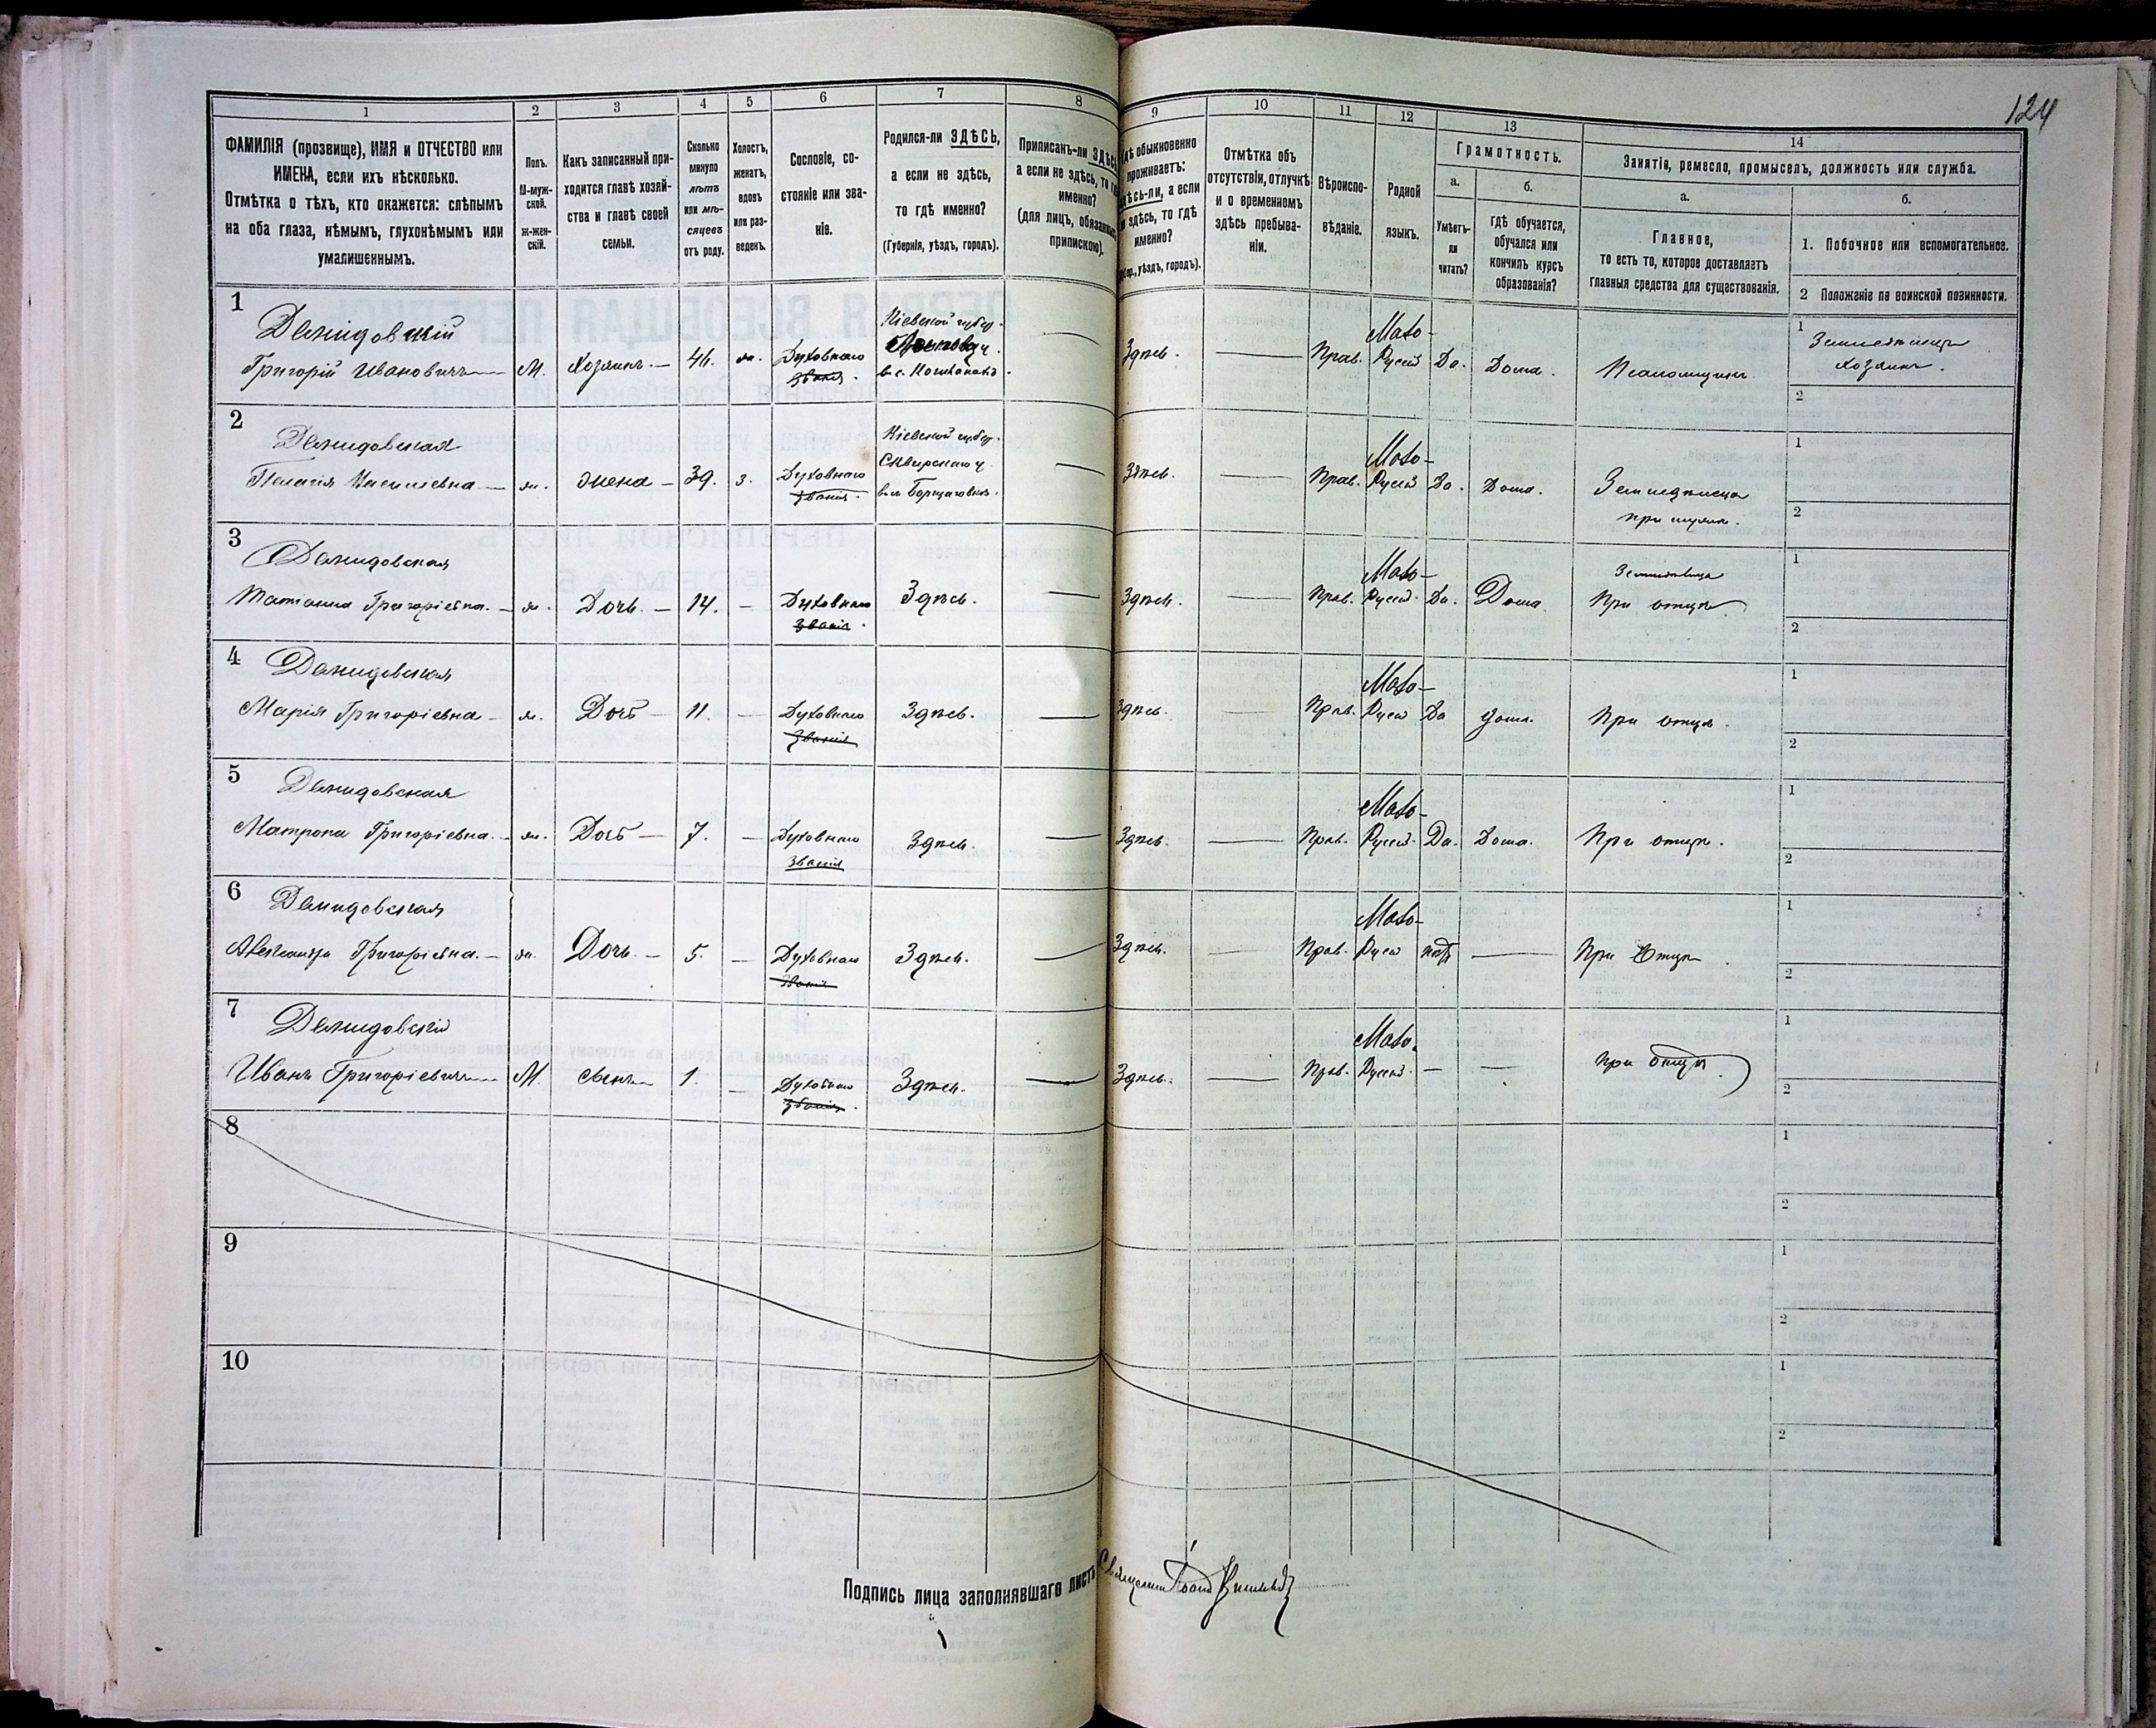 124
1
2
3
4
5
6
7
8
9
10
11
12
13
14
ФАМИЛІЯ (прозвище), ИМЯ и ОТЧЕСТВО или
ИМЕНА, если ихъ нѣсколько.
Отмѣтка о тѣхъ, кто окажется: слѣпымъ
на оба глаза, нѣмымъ, глухонѣмымъ или
умалишеннымъ.
Полъ.
М-муж-
ской.
ж-жен-
скій.
Какъ записанный при-
ходится главѣ хозяй-
ства и главѣ своей
семьи.
Сколько
минуло
лѣтъ
или мѣ-
сяцевъ
отъ роду.
Холостъ,
женатъ,
вдовъ
или раз-
веденъ.
Сословіе, со-
стояніе или зва-
ніе.
Родился-ли ЗДѢСЬ,
а если не здѣсь,
то гдѣ именно?
(Губернія, уѣздъ, городъ).
Приписанъ-ли ЗДѢСЬ,
а если не здѣсь, то гдѣ
именно?
(для лицъ, обязанныхъ
припискою).
Гдѣ обыкновенно
проживаетъ:
здѣсь-ли, а если
не здѣсь, то гдѣ
именно?
(Губер., уѣздъ, городъ).
Отмѣтка объ
отсутствіи, отлучкѣ
и о временномъ
здѣсь пребыва-
ніи.
Вѣроиспо-
вѣданіе.
Родной
языкъ.
Грамотность.
а.
Умѣетъ-
ли
читать?
б.
гдѣ обучается,
обучался или
кончилъ курсъ
образованія?
Занятіе, ремесло, промыселъ, должность или служба.
а.
Главное,
то есть то, которое доставляетъ
главныя средства для существованія.
б.
1. Побочное или вспомогательное.
2 Положеніе по воинской повинности.
1
Демидовскій
Григорій Ивановичъ
М.
Хозяинъ
46.
ж.
Духовнаго
званія.
Кіевской губер.
Здѣсь.
Прав.
Мало-
Русскій
Да.
Дома.
Псаломщикъ.
1
хозяинъ.
2
2
Демидовская
Пелагія Васильевна
ж.
Жена
39.
з.
Духовнаго
званія.
Кіевской губер.
Сквирскаго у.
Здѣсь.
Прав.
Мало-
Русскій
Да.
Дома.
при мужѣ.
1
2
3
Демидовская
Татіанна Григоріевна.
ж.
Дочь.
14.
Духовнаго
званія.
Здѣсь.
Здѣсь.
Прав.
Мало-
Русскій
Да.
Дома
При отцѣ
1
2
4
Демидовская
Марія Григоріевна
ж.
Дочь
11.
Духовнаго
званія
Здѣсь.
Здѣсь.
Прав.
Мало-
Русскій
Да
дома.
При отцѣ.
1
2
5
Демидовская
Матрона Григоріевна.
ж.
Дочь
7.
Духовнаго
званія
Здѣсь.
Здѣсь.
Прав.
Мало-
Русскій
Да.
Дома.
При отцѣ.
1
2
6
Демидовская
Александра Григоріевна.
ж.
Дочь.
5.
Духовнаго
званія
Здѣсь.
Здѣсь.
Прав.
Мало-
Русскій
нѣтъ
При Отцѣ
1
2
7
Демидовскій
Иванъ Григоріевичъ
М.
Сынъ
1.
Духовнаго
званія.
Здѣсь.
Здѣсь.
Прав.
Мало.
Русскій
При отцѣ
1
2
8
1
2
9
1
2
10
1
2
Подпись лица заполнявшаго листъ